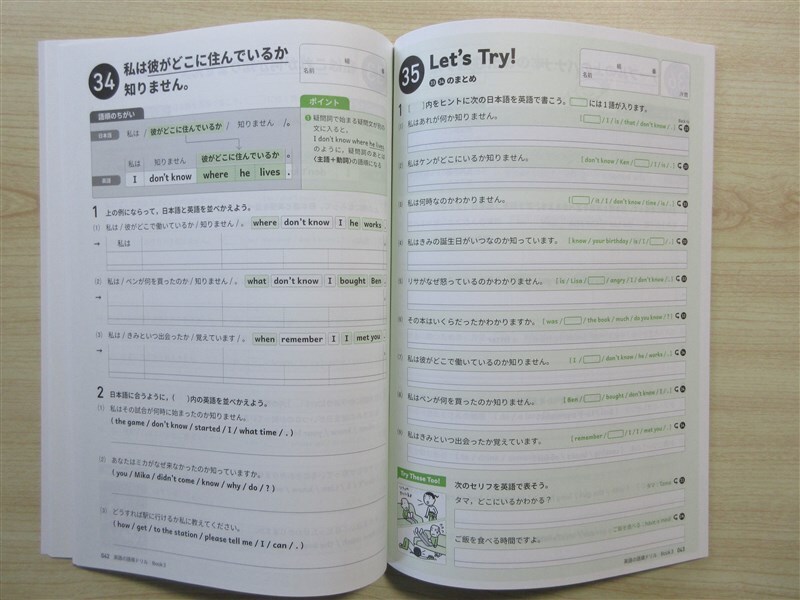 34
私は彼がどこに住んでいるか
知りません。
組 番
名前
語順のちがい
日本語 私は / 彼がどこに住んでいるか / 知りません /。
彼がどこに住んでいるか
私は 知りません 。
英語 I don't know where he lives .
ポイント
疑問詞で始まる疑問文が別の
文に入ると、
I don't know where he lives.
のように、疑問詞のあとは
〈主語＋動詞〉の語順になる
1 上の例にならって、日本語と英語を並べかえよう。
(1) 私は / 彼がどこで働いているか / 知りません / 。 where don't know I he works .
→ 私は
(2) 私は / ベンが何を買ったのか / 知りません / 。 what don't know I bought Ben .
→
(3) 私は / きみといつ出会ったか / 覚えています / 。 when remember I I met you .
→
2 日本語に合うように、( )内の英語を並べかえよう。
(1) 私はその試合が何時に始まったのか知りません。
( the game / don't know / started / I / what time / . )
(2) あなたはミカがなぜ来なかったのか知っていますか。
( you / Mika / didn't come / know / why / do / ? )
(3) どうすれば駅に行けるか私に教えてください。
( how / get / to the station / please tell me / I / can / . )
042 英語の語順ドリル Book 2
35
Let's Try!
33 34 のまとめ
組 番
名前
1 [ ]内をヒントに次の日本語を英語で書こう。 には1語が入ります。
(1) 私はあれが何か知りません。 [ / I / is / that / don't know / . ]
(2) 私はケンがどこにいるか知りません。 [ don't know / Ken / / I / is / . ]
(3) 私は何時なのかわかりません。 [ / it / I / don't know / time / is / . ]
(4) 私はきみの誕生日がいつなのか知っています。 [ know / your birthday / is / I / / . ]
(5) リサがなぜ怒っているのかわかりません。 [ is / Lisa / / angry / I / don't know / . ]
(6) その本はいくらだったかわかりますか。 [ was / / the book / much / do you know / ? ]
(7) 私は彼がどこで働いているのか知りません。 [ I / / don't know / he / works / . ]
(8) 私はベンが何を買ったのか知りません。 [ Ben / / bought / don't know / I / . ]
(9) 私はきみといつ出会ったか覚えています。 [ remember / / I / I / met you / . ]
Try These Too!
次のセリフを英語で表そう。
タマ、どこにいるかわかる？
タマ / Tama
ご飯を食べる時間ですよ。
043